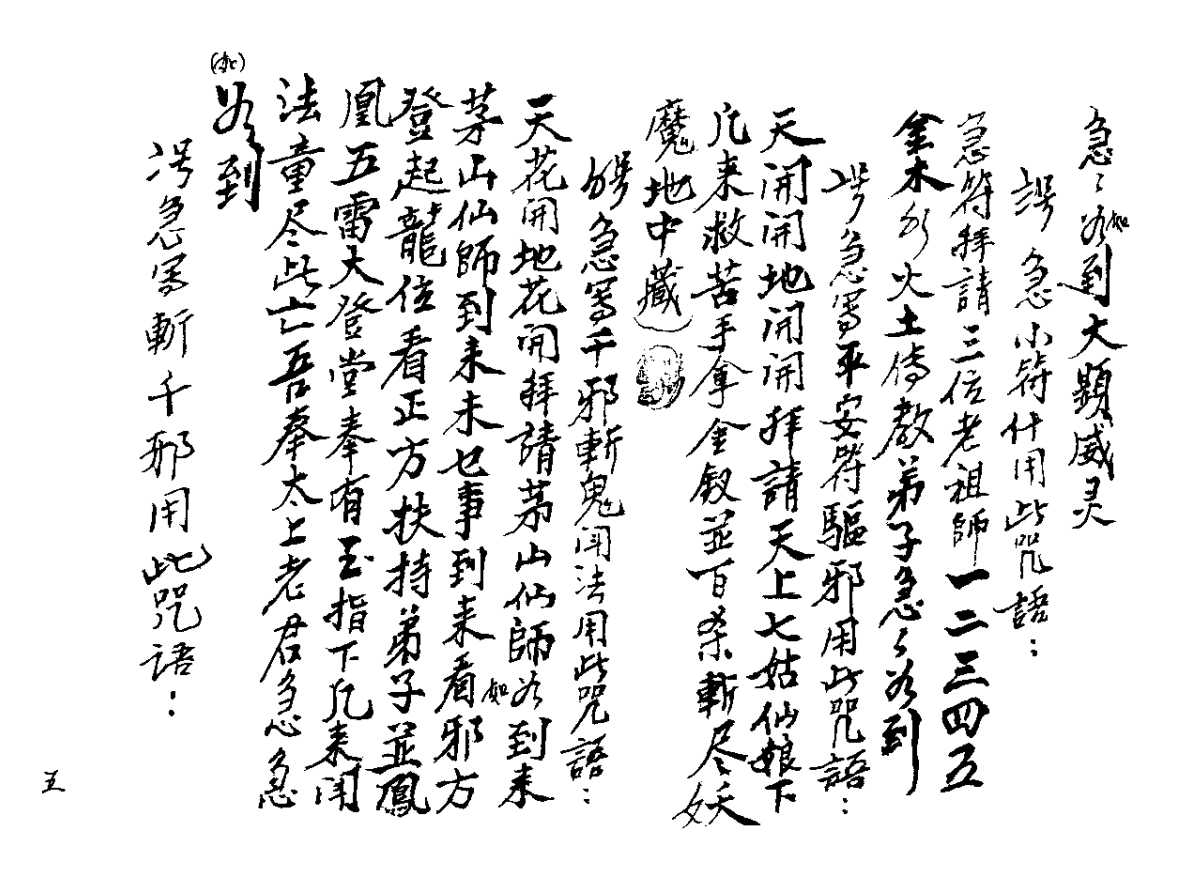 急々如到大顯威灵
急小符什用此咒語：
急符拜請三位老祖師一二三四五
金木水火土傳教弟子急々如到
急寫平安符驅邪用此咒語：
天開開地開開拜請天上七姑仙娘下
凡来救苦手拿金釵並百杀斬尽妖
魔地中藏
急寫千邪斬鬼闻法用此咒語：
天花開地花開拜請茅山仙師如到来
茅山仙師到来未乜事到来看邪方
登起龍位看正方扶持弟子並鳳
凰五雷大登堂奉有玉指下凡来闻
法童尽此亡吾奉太上老君急急
(如)
到
急寫斬千邪用此咒语：
五